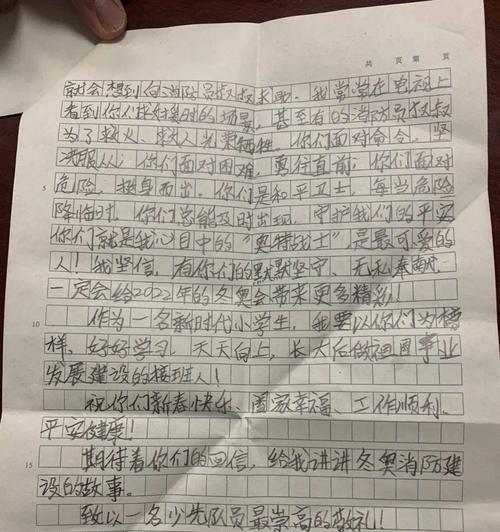 共 页 第 页
就会想到向消防员叔叔求助。我常常在电视上
看到你们救援时的场景，甚至有的消防员叔叔
为了救火、救人光荣牺牲。你们面对命令，坚
决服从；你们面对困难，勇往直前；你们面对
5
危险，挺身而出。你们是和平卫士，每当危险
降临时，你们总能及时出现，守护我们的平安
你们就是我心目中的“奥特战士”是最可爱的
人！我坚信，有你们的默默坚守、无私奉献，
一定会给2022年的冬奥会带来更多精彩！
10
作为一名新时代小学生，我要以你们为榜
样，好好学习，天天向上，长大后做祖国事业
发展建设的接班人！
祝你们新春快乐、阖家幸福、工作顺利、
平安健康！
15
期待着你们的回信，给我讲讲冬奥消防建
设的故事。
致以一名少先队员最崇高的敬礼！